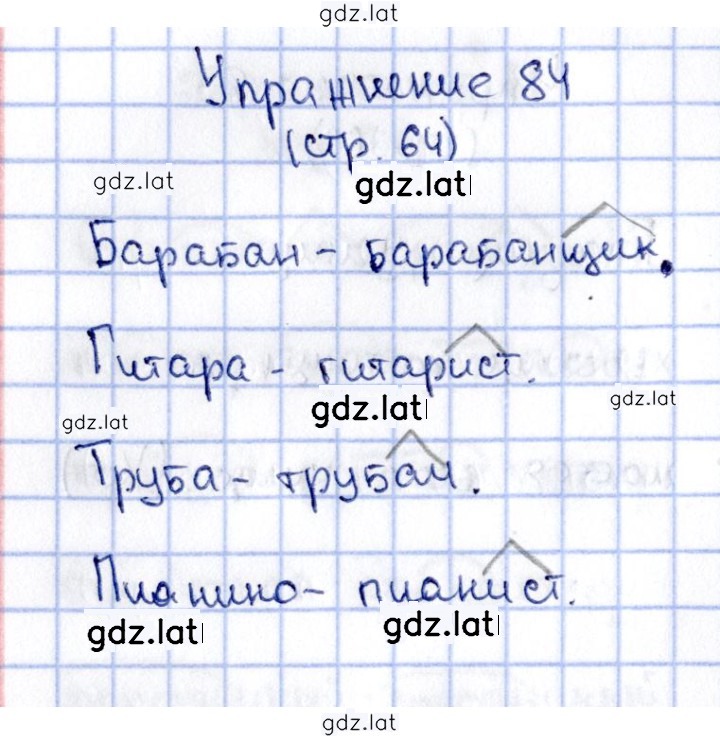 gdz.lat
Упражнение 84
(стр. 64)
gdz.lat gdz.lat
Барабан - барабанщик.
Гитара - гитарист.
gdz.lat gdz.lat
gdz.lat
Труба - трубач.
Пианино - пианист.
gdz.lat gdz.lat
gdz.lat